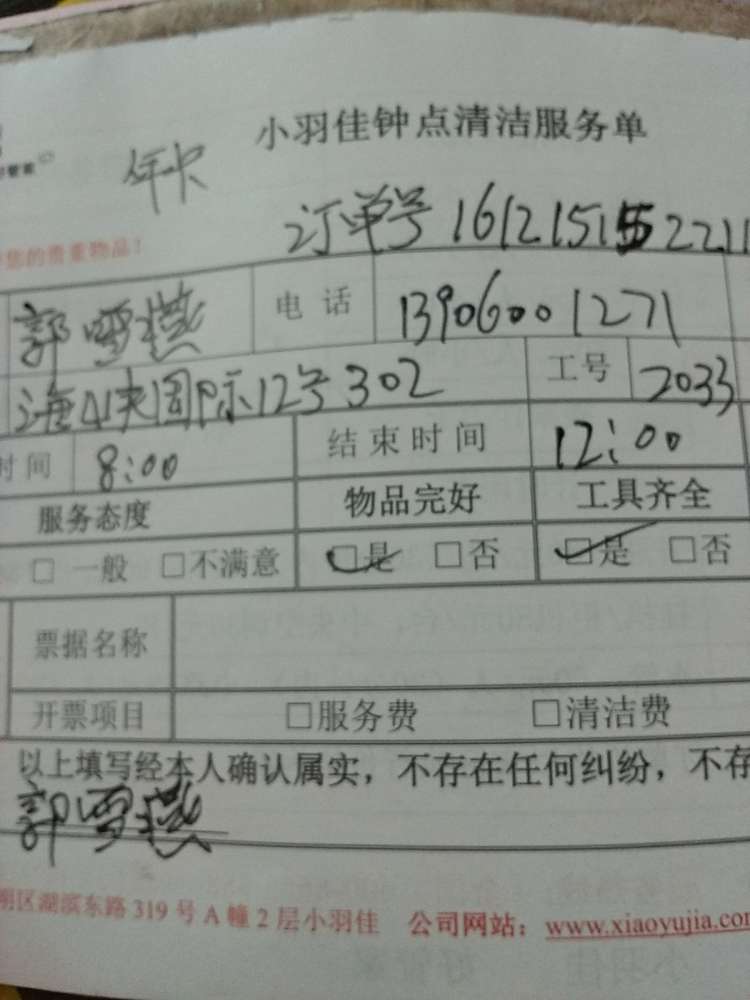 小羽佳钟点清洁服务单
年卡
订单号
您的贵重物品！
郭雪燕 电话 13906001271
海峡国际12号302 工号 2033
时间 8:00 结束时间 12:00
服务态度 物品完好 工具齐全
□ 一般 □不满意 □是 □否 □是 □否
票据名称
开票项目 □服务费 □清洁费
以上填写经本人确认属实，不存在任何纠纷，不存
郭雪燕
明区湖滨东路 319 号 A 幢 2 层小羽佳 公司网站：www.xiaoyujia.com